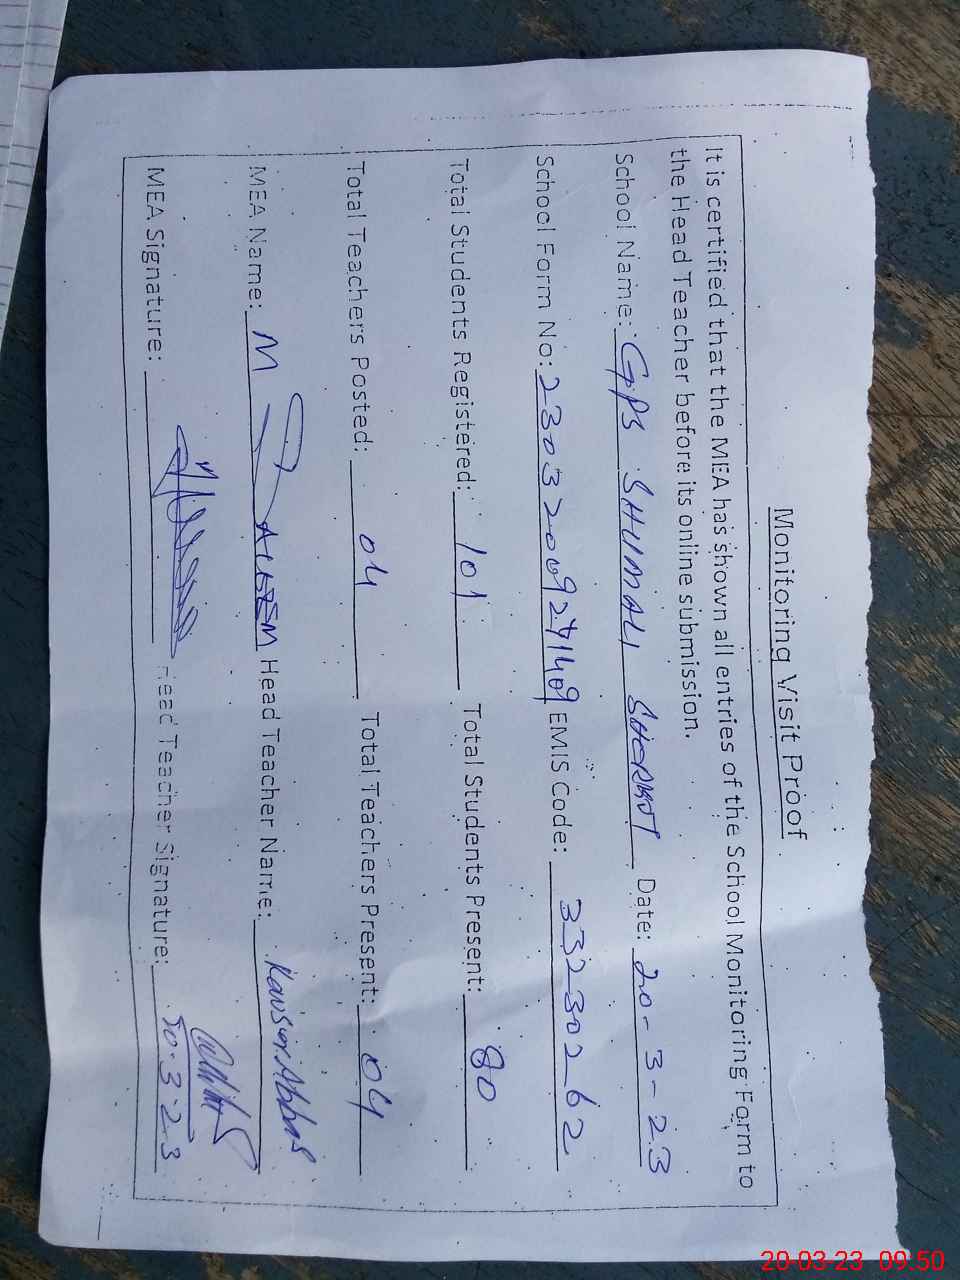 Monitoring Visit Proof
It is certified that the MEA has shown all entries of the School Monitoring Form to
the Head Teacher before its online submission.
School Name: GPS SHUMALI Date: 20-3-23
School Form No: EMIS Code: 33230262
Total Students Registered: 101 Total Students Present: 80
Total Teachers Posted: 04 Total Teachers Present: 04
MEA Name: M Head Teacher Name: Kausar Abbas
MEA Signature: Head Teacher Signature:
20-03-23 09.50